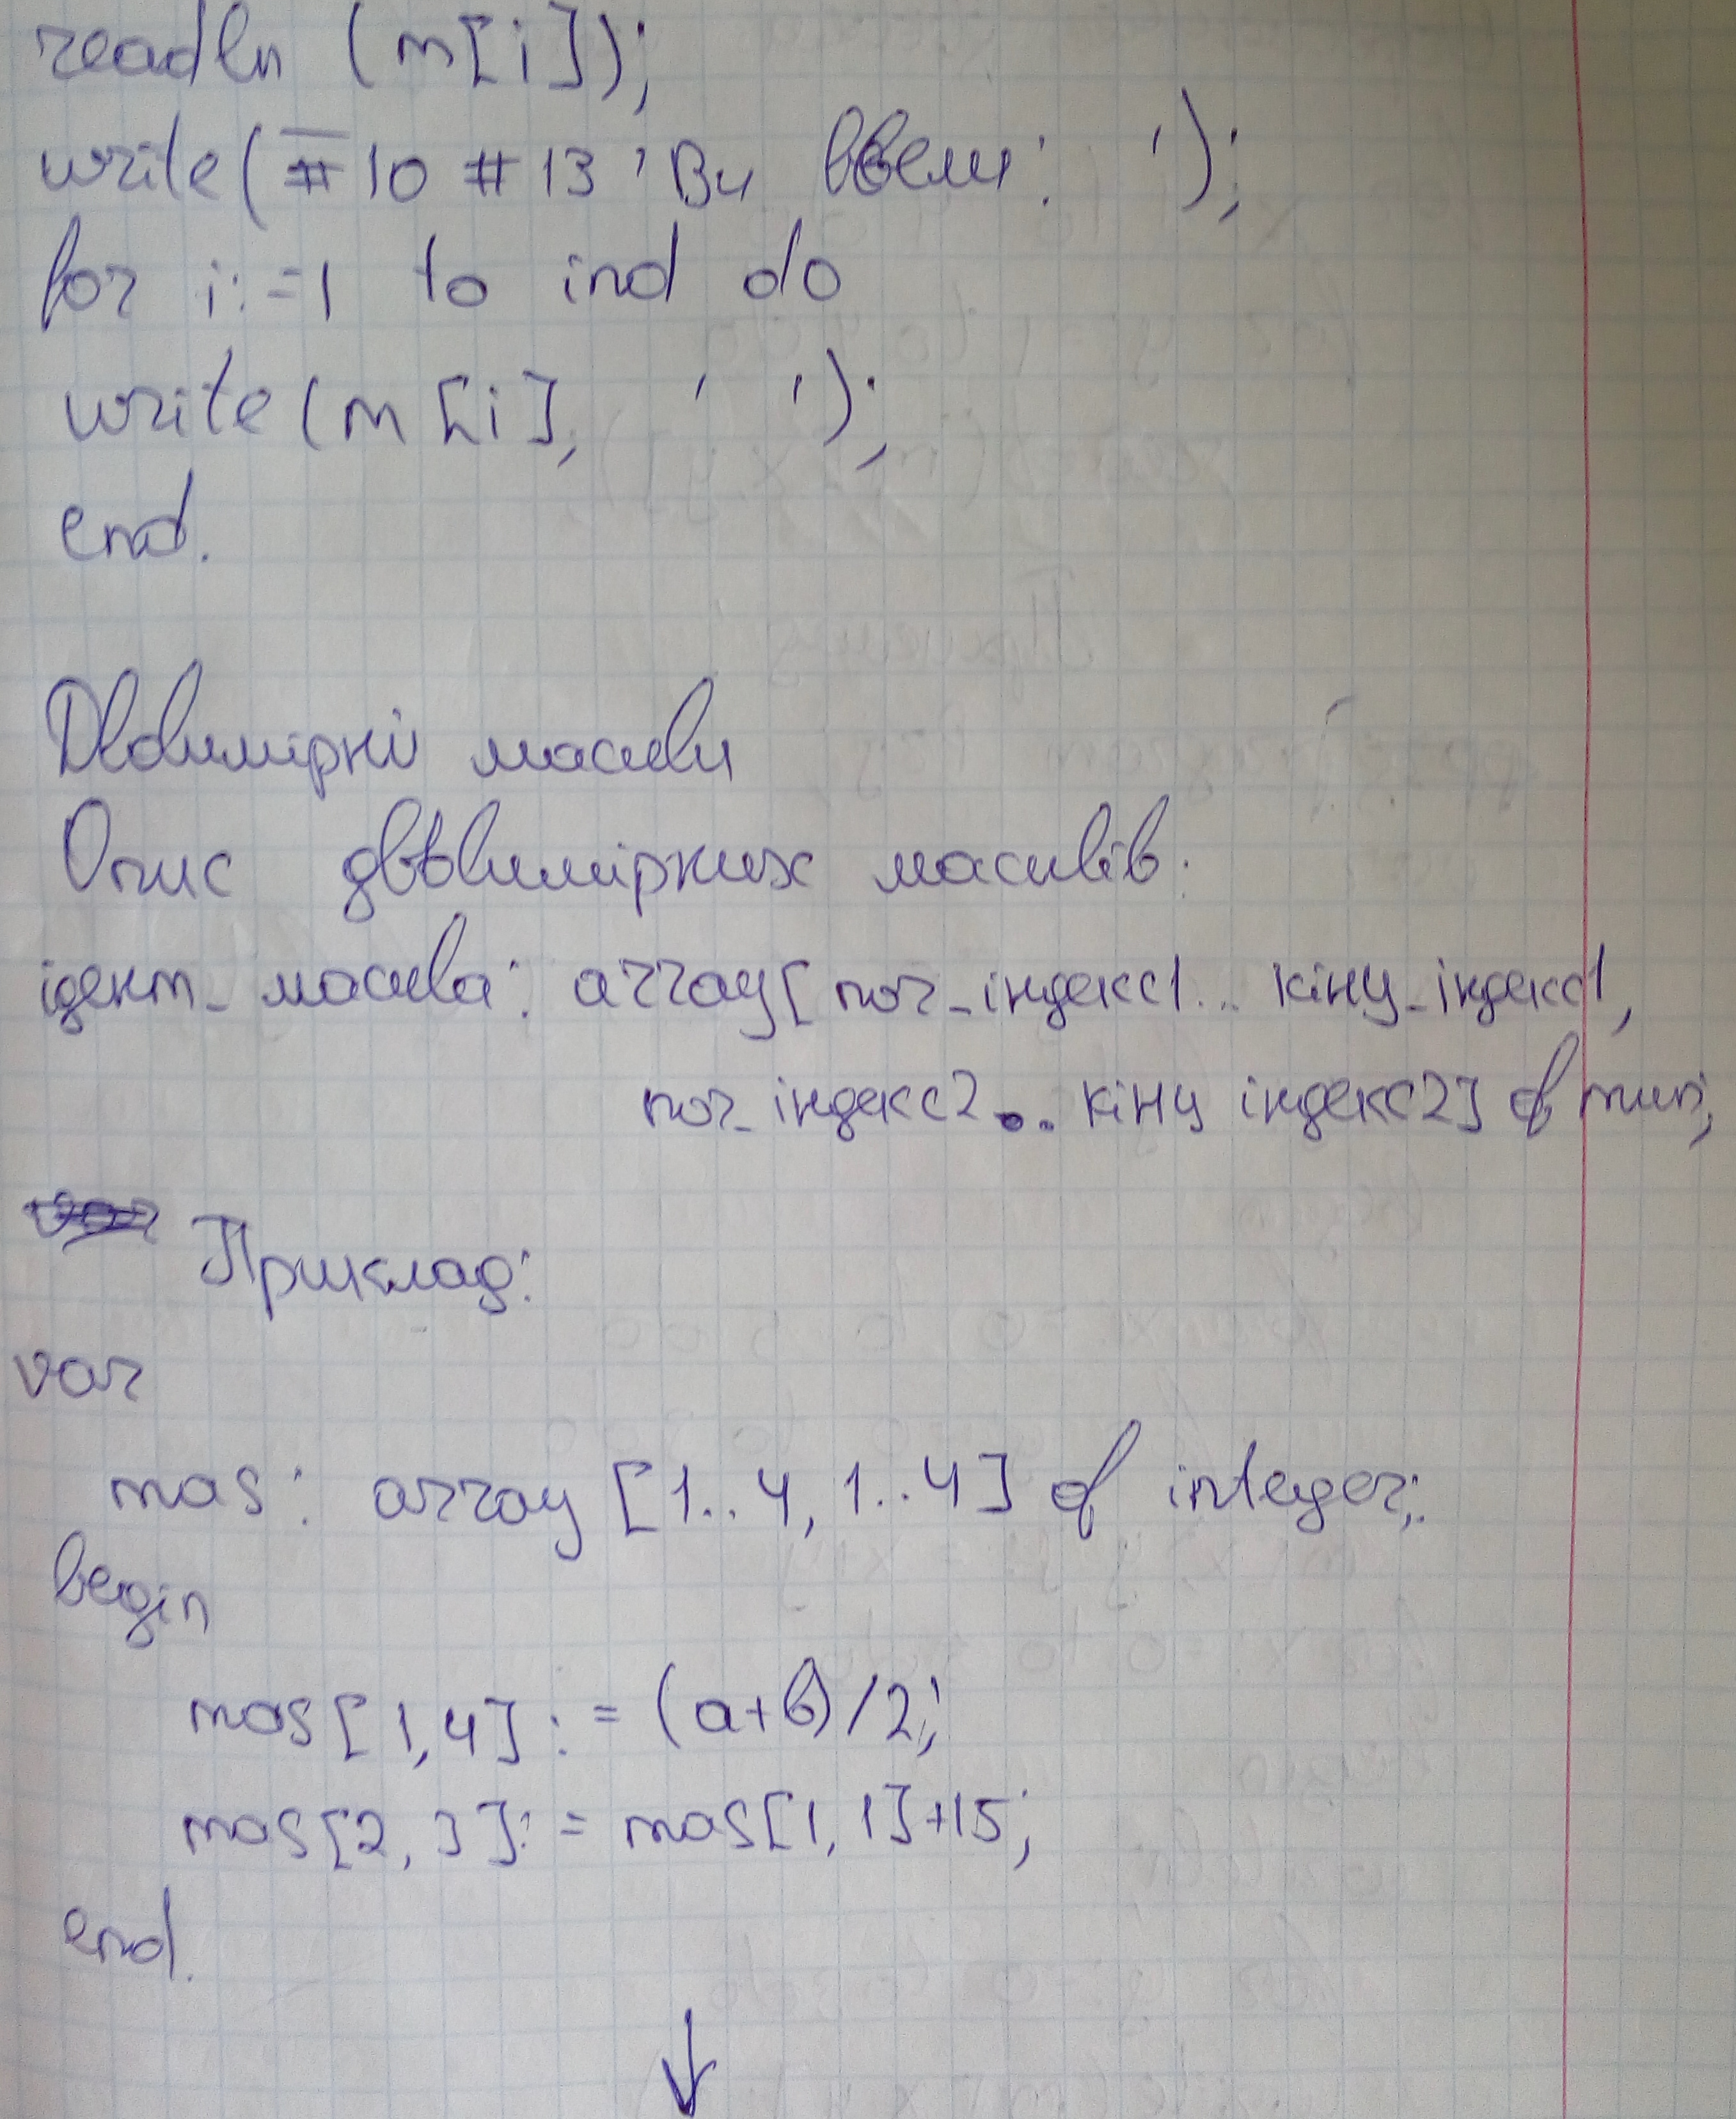 readln (m[i]);
write(#10 #13 'Ви ввели: ');
for i:=1 to ind do
write(m[i], ' ');
end.
Двовимірні масиви
Опис двовимірних масивів:
ідент_ масива: array[поч_індекс1.. кінц_індекс1,
поч_індекс2.. кінц індекс2] of тип;
var Приклад:
var
mas: array [1..4, 1..4] of integer;
begin
mas[1,4]:=(a+b)/2;
mas[2,3]:=mas[1,1]+15;
end.